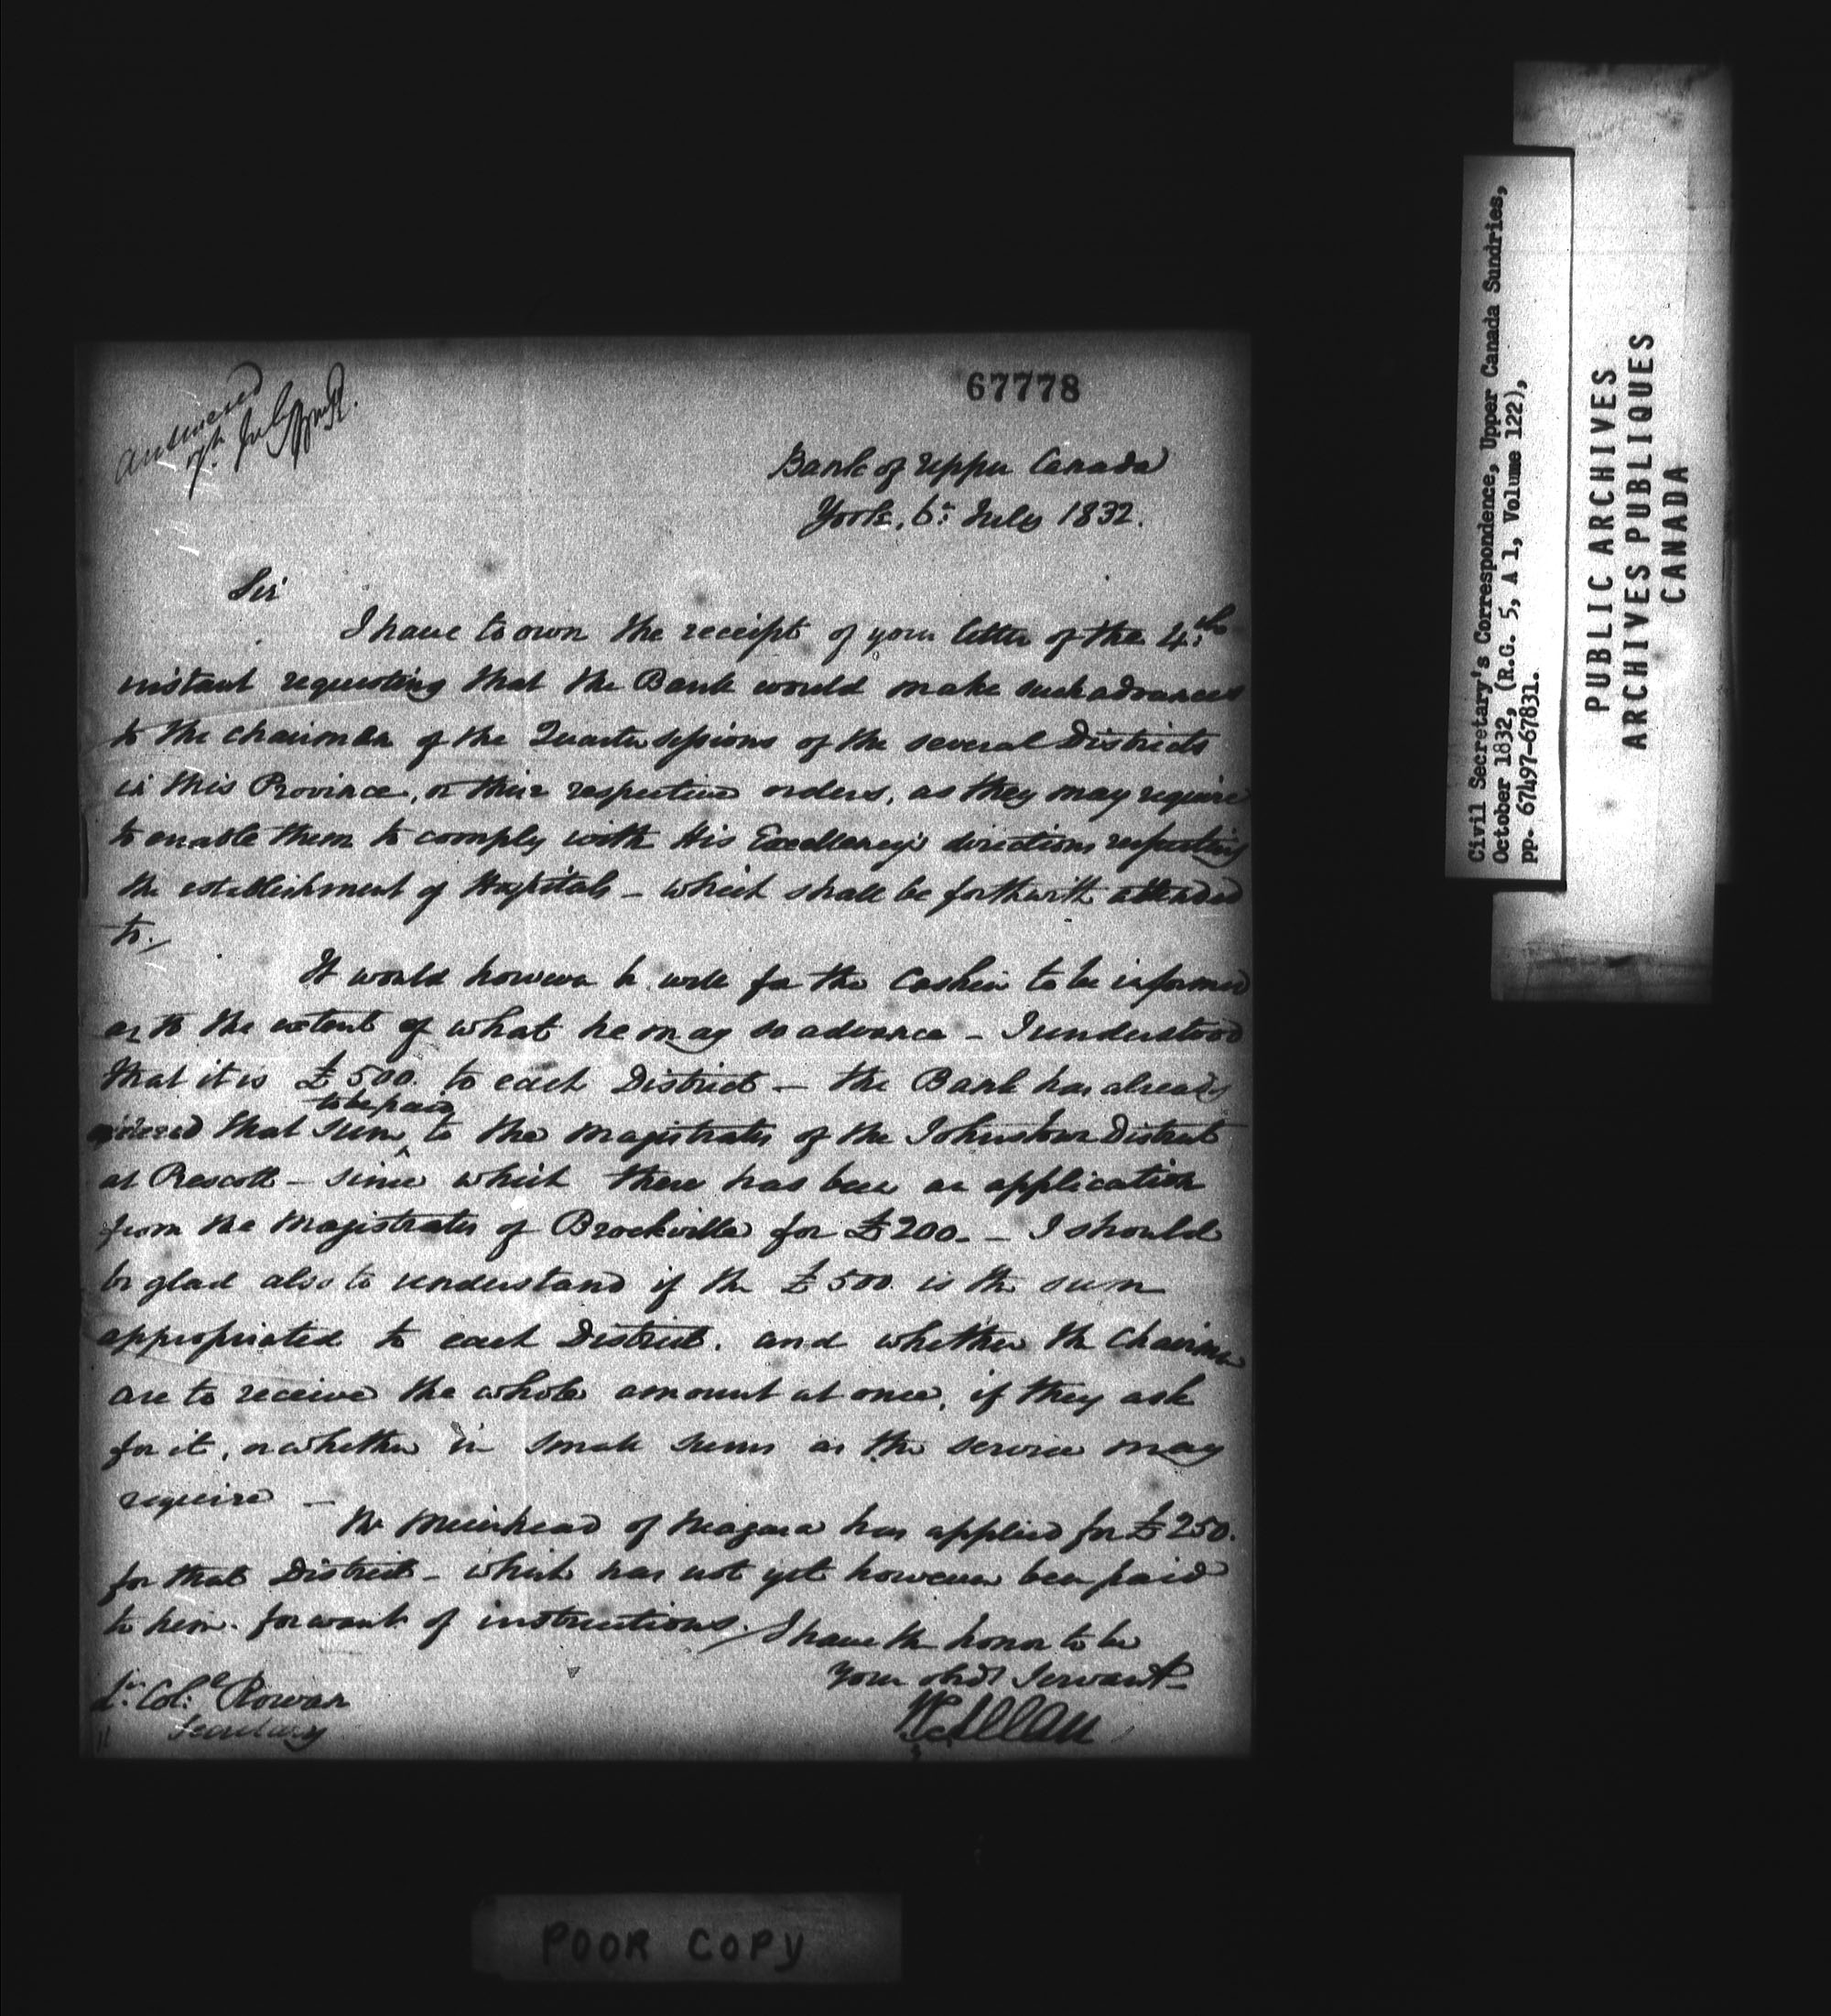 67778
answered
7th July
Bank of Upper Canada
York, 6th July 1832.
Sir
I have to own the receipt of your letter of the 4th
instant requesting that the Bank would make such advances
to the chairmen of the Quarter sessions of the several Districts
in this Province, or their respective orders, as they may require
to enable them to comply with His Excellency's directions respecting
the establishment of Hospitals – which shall be forthwith attended
to.
It would however be well for the Cashier to be informed
as to the extent of what he may so advance – I understood
that it is £500. to each District – the Bank has already
ordered that sum to be paid to the Magistrates of the Johnstown District
at Prescott – since which there has been an application
from the Magistrates of Brockville for £200. – I should
be glad also to understand if the £500. is the sum
appropriated to each District. and whether the Chairmen
are to receive the whole amount at once, if they ask
for it, or whether in small sums as the service may
require –
Mr Muirhead of Niagara has applied for £250.
for that District – which has not yet however been paid
to him. for want of instructions.
I have the honor to be
Your obdt Servant
Wm Allan
Lt Coll Rowan
Secretary
Civil Secretary's Correspondence, Upper Canada Sundries,
October 1832, (R.G. 5, A 1, Volume 122),
pp. 67497-67831.
PUBLIC ARCHIVES
ARCHIVES PUBLIQUES
CANADA
POOR COPY